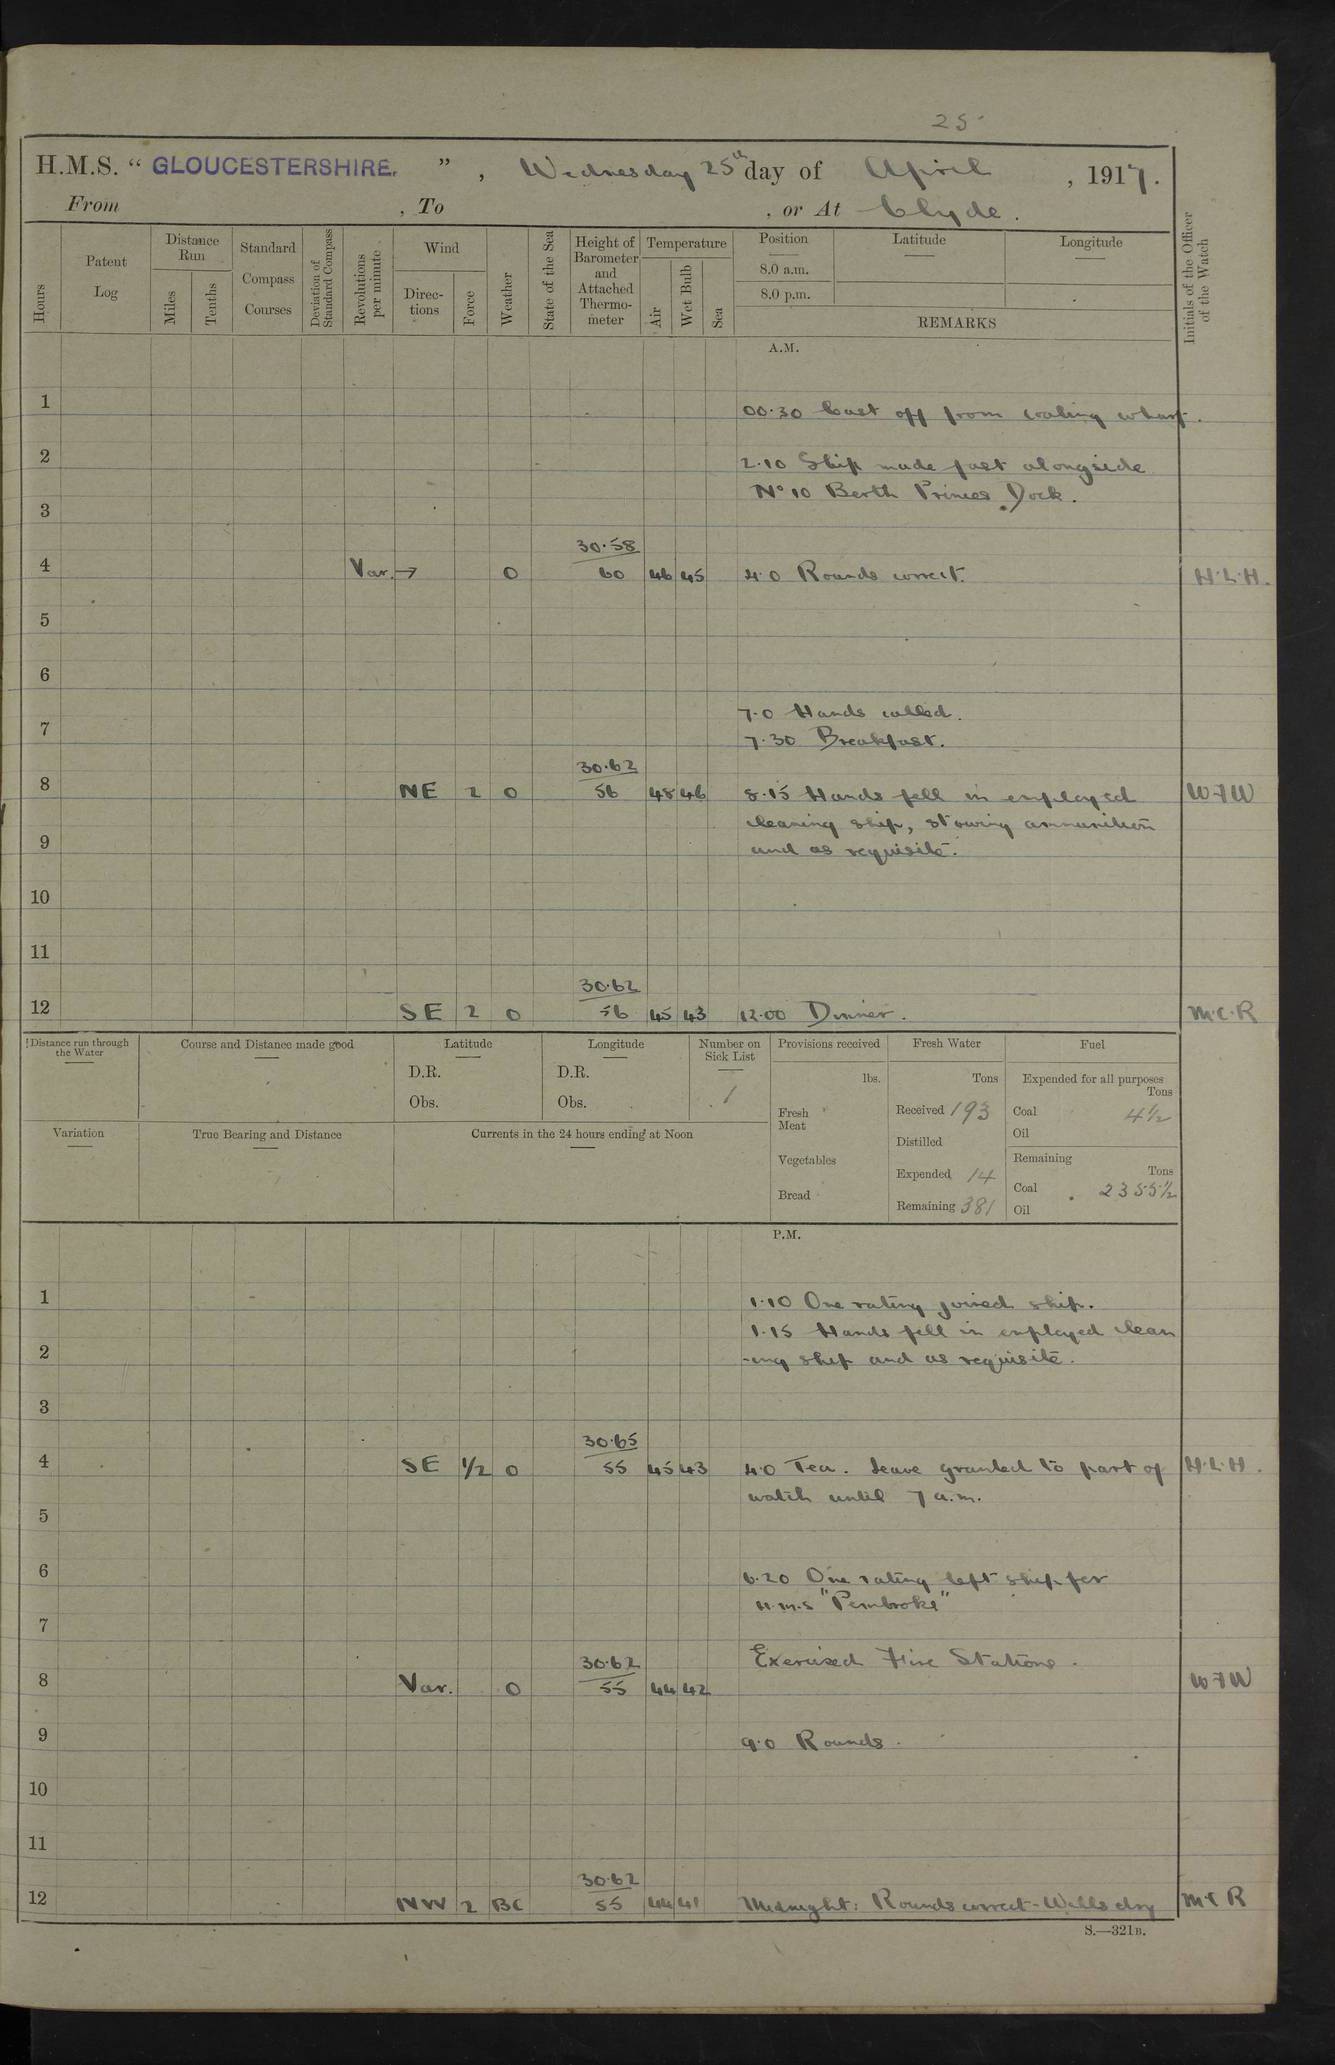 25
H.M.S. “ GLOUCESTERSHIRE. ” , Wednesday 25th day of April , 1917.
From , To , or At Clyde.
Hours
Patent Log
Distance Run
Miles
Tenths
Standard Compass Courses
Deviation of Standard Compass
Revolutions per minute
Wind
Directions
Force
Weather
State of the Sea
Height of Barometer and Attached Thermometer
Temperature
Air
Wet Bulb
Sea
Position
8.0 a.m.
8.0 p.m.
Latitude
Longitude
REMARKS
Initials of the Officer of the Watch
A.M.
1 00.30 Cast off from coaling wharf.
2 2.10 Ship made fast alongside
No 10 Berth Princes Dock.
3
30.58
4 Var. → 0 60 46 45 4.0 Rounds correct. H.L.H.
5
6
7.0 Hands called.
7 7.30 Breakfast.
30.62
8 NE 2 0 56 48 46 8.15 Hands fell in employed W F W
cleaning ship, stowing ammunition
9 and as requisite.
10
11
30.62
12 SE 2 0 56 45 43 12.00 Dinner. M.C.R
Distance run through the Water
Course and Distance made good
Latitude
D.R.
Obs.
Longitude
D.R.
Obs.
Number on Sick List
1
Variation
True Bearing and Distance
Currents in the 24 hours ending at Noon
Provisions received
lbs.
Fresh Meat
Vegetables
Bread
Fresh Water
Tons
Received 193
Distilled
Expended 14
Remaining 381
Fuel
Expended for all purposes
Tons
Coal 4½
Oil
Remaining
Tons
Coal 2355½
Oil
P.M.
1 1.10 One rating joined ship.
1.15 Hands fell in employed clean
2 -ing ship and as requisite.
3
30.65
4 SE 1/2 0 55 45 43 4.0 Tea. Leave granted to part of H.L.H.
watch until 7 a.m.
5
6 6.20 One rating left ship for
H.M.S "Pembroke"
7
30.62 Exercised Fire Stations.
8 Var. 0 55 44 42 W F W
9 9.0 Rounds.
10
11
30.62
12 NW 2 BC 55 44 41 Midnight: Rounds correct - Wells dry M C R
S.—321B.